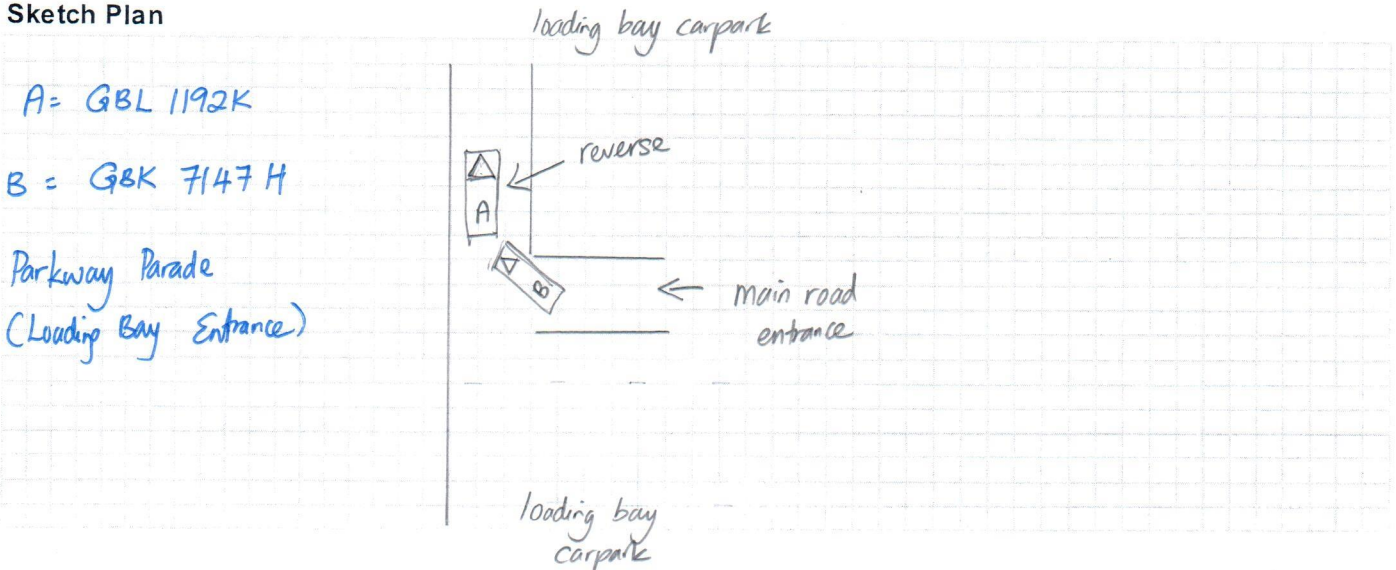 Sketch Plan
loading bay carpark
A= GBL 1192K
reverse
A
B = GBK 7147 H
B
Parkway Parade
(Loading Bay Entrance)
main road
entrance
loading bay
carpark